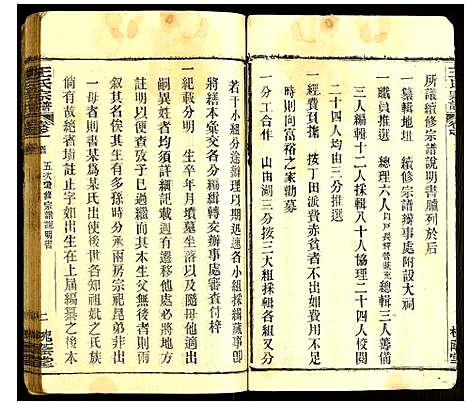 王氏宗譜
所議續修宗譜說明書臚列於后
一纂輯地址　續修宗譜辦事處附設大祠
一職員推選　總理六人 總輯三人籌備
三人編輯十二人採輯八十人協理二十四人校閱
二十四人均由三分推選
一經費支用　按丁田派費赤貧者不出如用不足
時則向富裕之家勸募
一分工合作　山由湖三分按三大組採輯各組又分
若干小組分途辦理以期迅速各小組採緝蕆事卽
將繕本彙交各分編緝轉交辦事處審查付梓
一紀載分明　生卒年月墳墓坐落以及隨母他適出
嗣異姓者均須詳細記載過有遷移他處必將地方
註明以便查考致乎已過繼而其本生父無後者則
叙其名俟其生有多孫時分承兩房宗祀昆弟非出
一母者則書某爲某氏出使後世各知祖妣之氏族
倘有故絕者墻註止字如出生在上屆編纂之後本
王氏宗譜
五次續修宗譜說明書
槐蔭堂